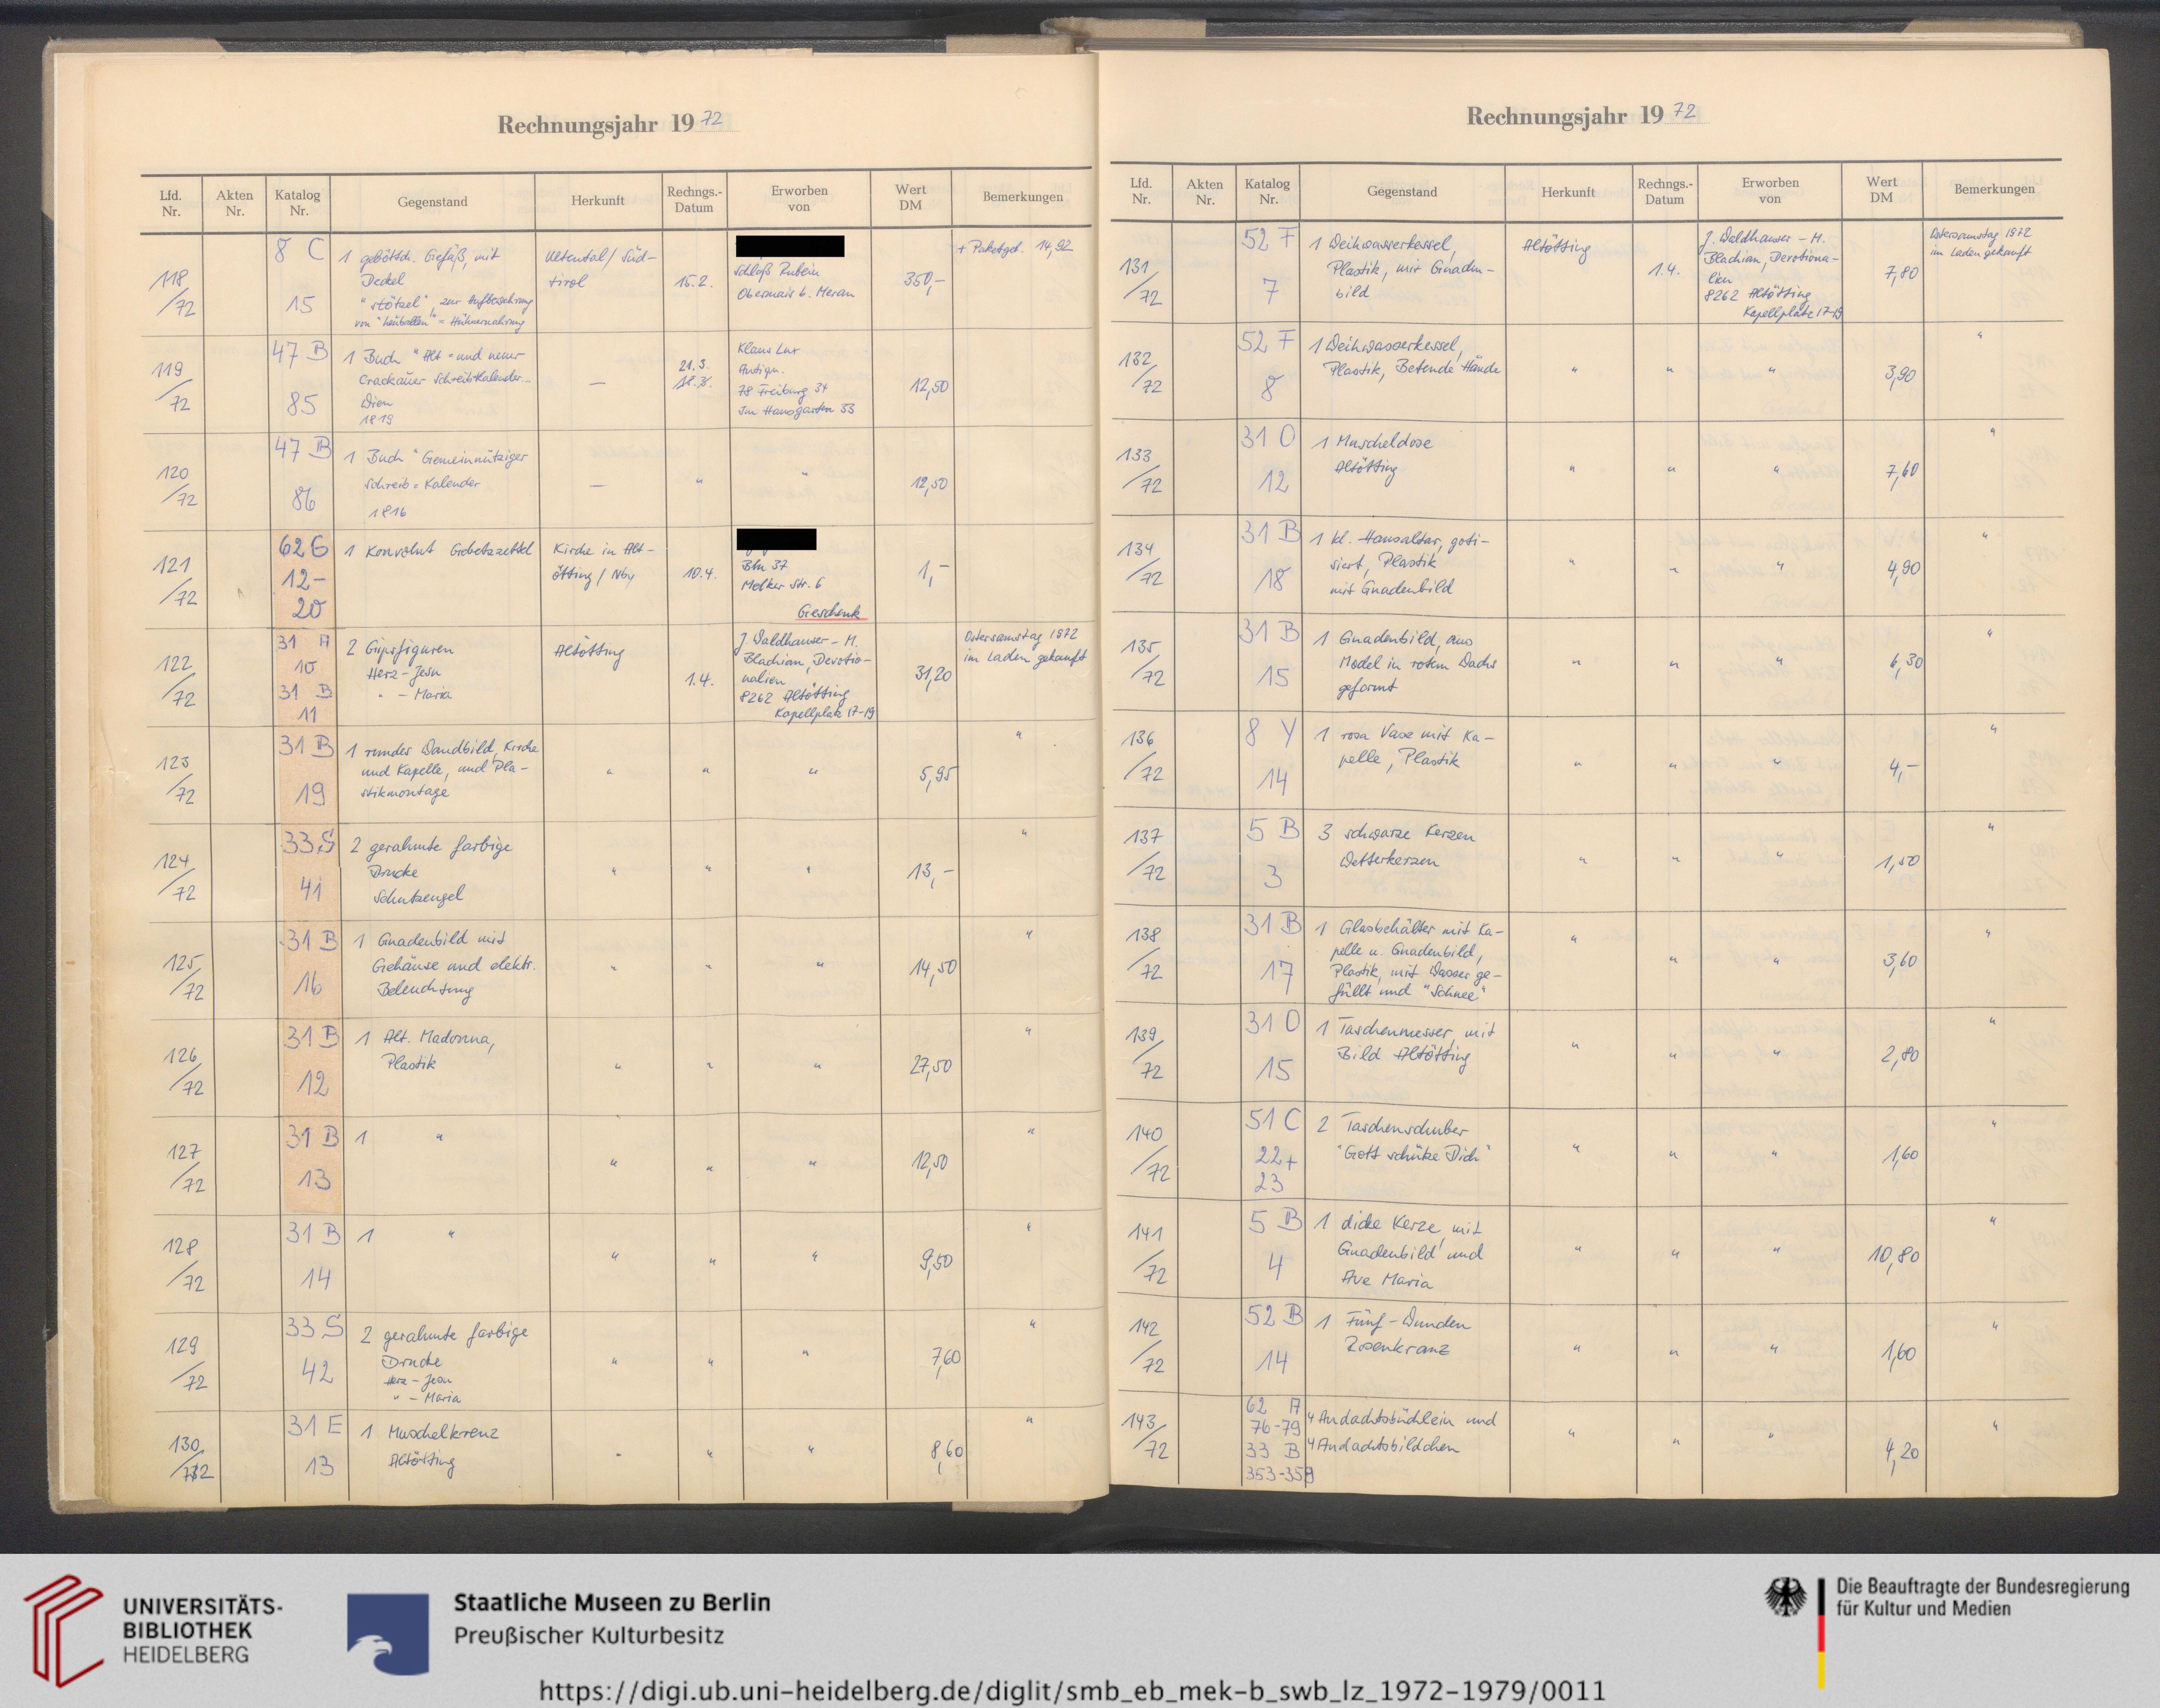 Rechnungsjahr 19 72
Lfd. Nr. Akten Nr. Katalog Nr. Gegenstand Herkunft Rechngs.-Datum Erworben von Wert DM Bemerkungen
118/72
8 C
15
1 göböttch. Gefäß, mit
Deckel
"Stötzel", zur Aufbewahrung
von "Heuballen" = Hühnernahrung
Ultental / Süd-
tirol
15.2.
Schloß Rubein
Obermais b. Meran
350,-
+ Paketgeb. 14,92
119/72
47 B
85
1 Buch "Alt- und neuer
Crackauer Schreibkalender..
Wien
1819
—
21.3.
Klaus Lux
Antiqu.
78 Freiburg 34
Im Hausgarten 33
12,50
120/72
47 B
86
1 Buch "Gemeinnütziger
Schreib=Kalender
1816
—
"
"
12,50
121/72
62 G
12-
20
1 Konvolut Gebetszettel
Kirche in Alt-
ötting / Nby
10.4.
Bln 37
Melker Str. 6
Geschenk
1,-
122/72
31 A
10
31 B
11
2 Gipsfiguren
Herz-Jesu
" - Maria
Altötting
1.4.
J. Waldhauser - M.
Blachian, Devotio-
nalien
8262 Altötting
Kapellplatz 17-19
31,20
Ostersamstag 1972
im Laden gekauft
123/72
31 B
19
1 rundes Wandbild, Kirche
und Kapelle, und Pla-
stikmontage
"
"
"
5,95
"
124/72
33 S
41
2 gerahmte farbige
Drucke
Schutzengel
"
"
"
13,-
"
125/72
31 B
16
1 Gnadenbild mit
Gehäuse und elektr.
Beleuchtung
"
"
"
14,50
"
126/72
31 B
12
1 Alt. Madonna,
Plastik
"
"
"
27,50
"
127/72
31 B
13
1 "
"
"
"
12,50
"
128/72
31 B
14
1 "
"
"
"
9,50
"
129/72
33 S
42
2 gerahmte farbige
Drucke
Herz-Jesu
" - Maria
"
"
"
7,60
"
130/72
31 E
13
1 Muschelkreuz
Altötting
"
"
"
8,60
"
Rechnungsjahr 19 72
Lfd. Nr. Akten Nr. Katalog Nr. Gegenstand Herkunft Rechngs.-Datum Erworben von Wert DM Bemerkungen
131/72
52 F
7
1 Weihwasserkessel,
Plastik, mit Gnaden-
bild
Altötting
1.4.
J. Waldhauser - M.
Blachian, Devotiona-
lien
8262 Altötting
Kapellplatz 17-19
7,80
Ostersamstag 1972
im Laden gekauft
132/72
52 F
8
1 Weihwasserkessel,
Plastik, Betende Hände
"
"
"
3,90
"
133/72
31 O
12
1 Muscheldose
Altötting
"
"
"
7,60
"
134/72
31 B
18
1 kl. Hausaltar, goti-
siert, Plastik
mit Gnadenbild
"
"
"
4,90
"
135/72
31 B
15
1 Gnadenbild, aus
Model in rotem Wachs
geformt
"
"
"
6,30
"
136/72
8 Y
14
1 rosa Vase mit Ka-
pelle, Plastik
"
"
"
4,-
"
137/72
5 B
3
3 schwarze Kerzen
Wetterkerzen
"
"
"
1,50
"
138/72
31 B
17
1 Glasbehälter mit Ka-
pelle u. Gnadenbild,
Plastik, mit Wasser ge-
füllt und "Schnee"
"
"
"
3,60
"
139/72
31 O
15
1 Taschenmesser, mit
Bild Altötting
"
"
"
2,80
"
140/72
51 C
22+
23
2 Taschenschuber
"Gott schütze Dich"
"
"
"
1,60
"
141/72
5 B
4
1 dicke Kerze, mit
Gnadenbild und
Ave Maria
"
"
"
10,80
"
142/72
52 B
14
1 Fünf-Wunden
Rosenkranz
"
"
"
1,60
"
143/72
62 A
76-79
33 B
353-359
4 Andachtsbüchlein und
4 Andachtsbildchen
"
"
"
4,20
"
UNIVERSITÄTS-
BIBLIOTHEK
HEIDELBERG
Staatliche Museen zu Berlin
Preußischer Kulturbesitz
Die Beauftragte der Bundesregierung
für Kultur und Medien
https://digi.ub.uni-heidelberg.de/diglit/smb_eb_mek-b_swb_lz_1972-1979/0011